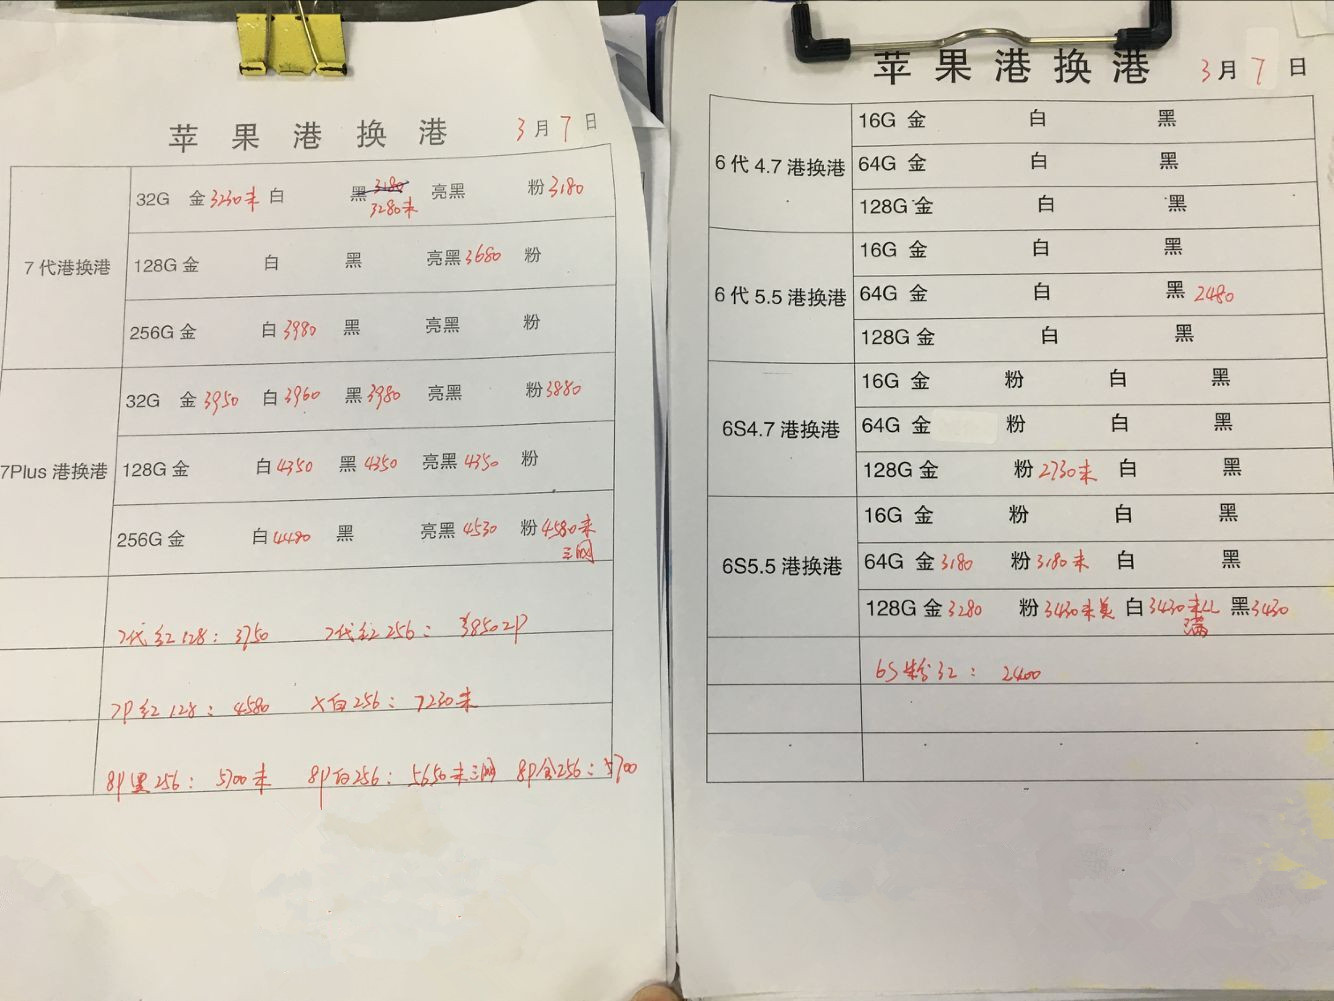 苹果港换港 3月7日
7代港换港
32G 金3230未 白 黑3180 亮黑 粉3180
3280未
128G 金 白 黑 亮黑3680 粉
256G 金 白3980 黑 亮黑 粉
7Plus 港换港
32G 金3950 白3960 黑3980 亮黑 粉3880
128G 金 白4350 黑4350 亮黑4350 粉
256G 金 白4480 黑 亮黑4530 粉4580未
三网
7代红128：3750 7代红256：3850 2P
7P红128：4580 X白256：7230未
8P黑256：5700未 8P白256：5650未三网 8P金256：5700
苹果港换港 3月7日
6代4.7港换港
16G 金 白 黑
64G 金 白 黑
128G 金 白 黑
6代5.5港换港
16G 金 白 黑
64G 金 白 黑2480
128G 金 白 黑
6S4.7港换港
16G 金 粉 白 黑
64G 金 粉 白 黑
128G 金 粉2730未 白 黑
6S5.5港换港
16G 金 粉 白 黑
64G 金3180 粉3180未 白 黑
128G 金3280 粉3430未美 白3430未LL 黑3430
满
6S粉32：2400